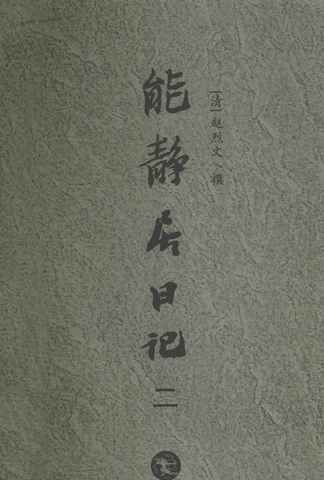 [清]赵烈文 撰
能静居日记
二